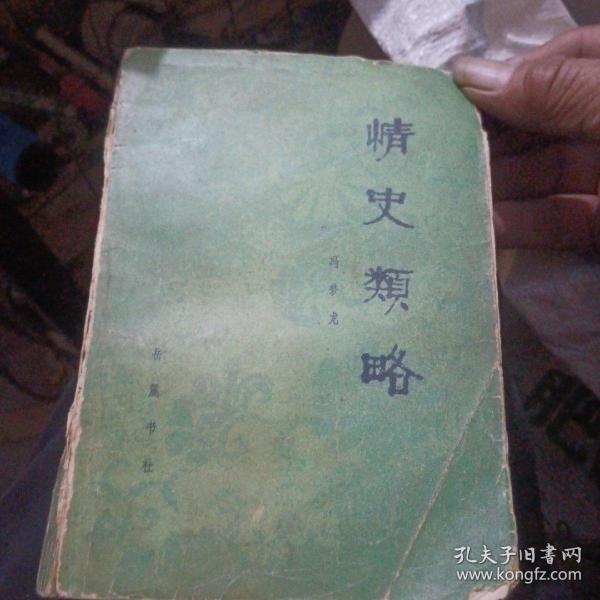 情史類略
冯梦龙
岳麓书社
孔夫子旧书网
www.kongfz.com